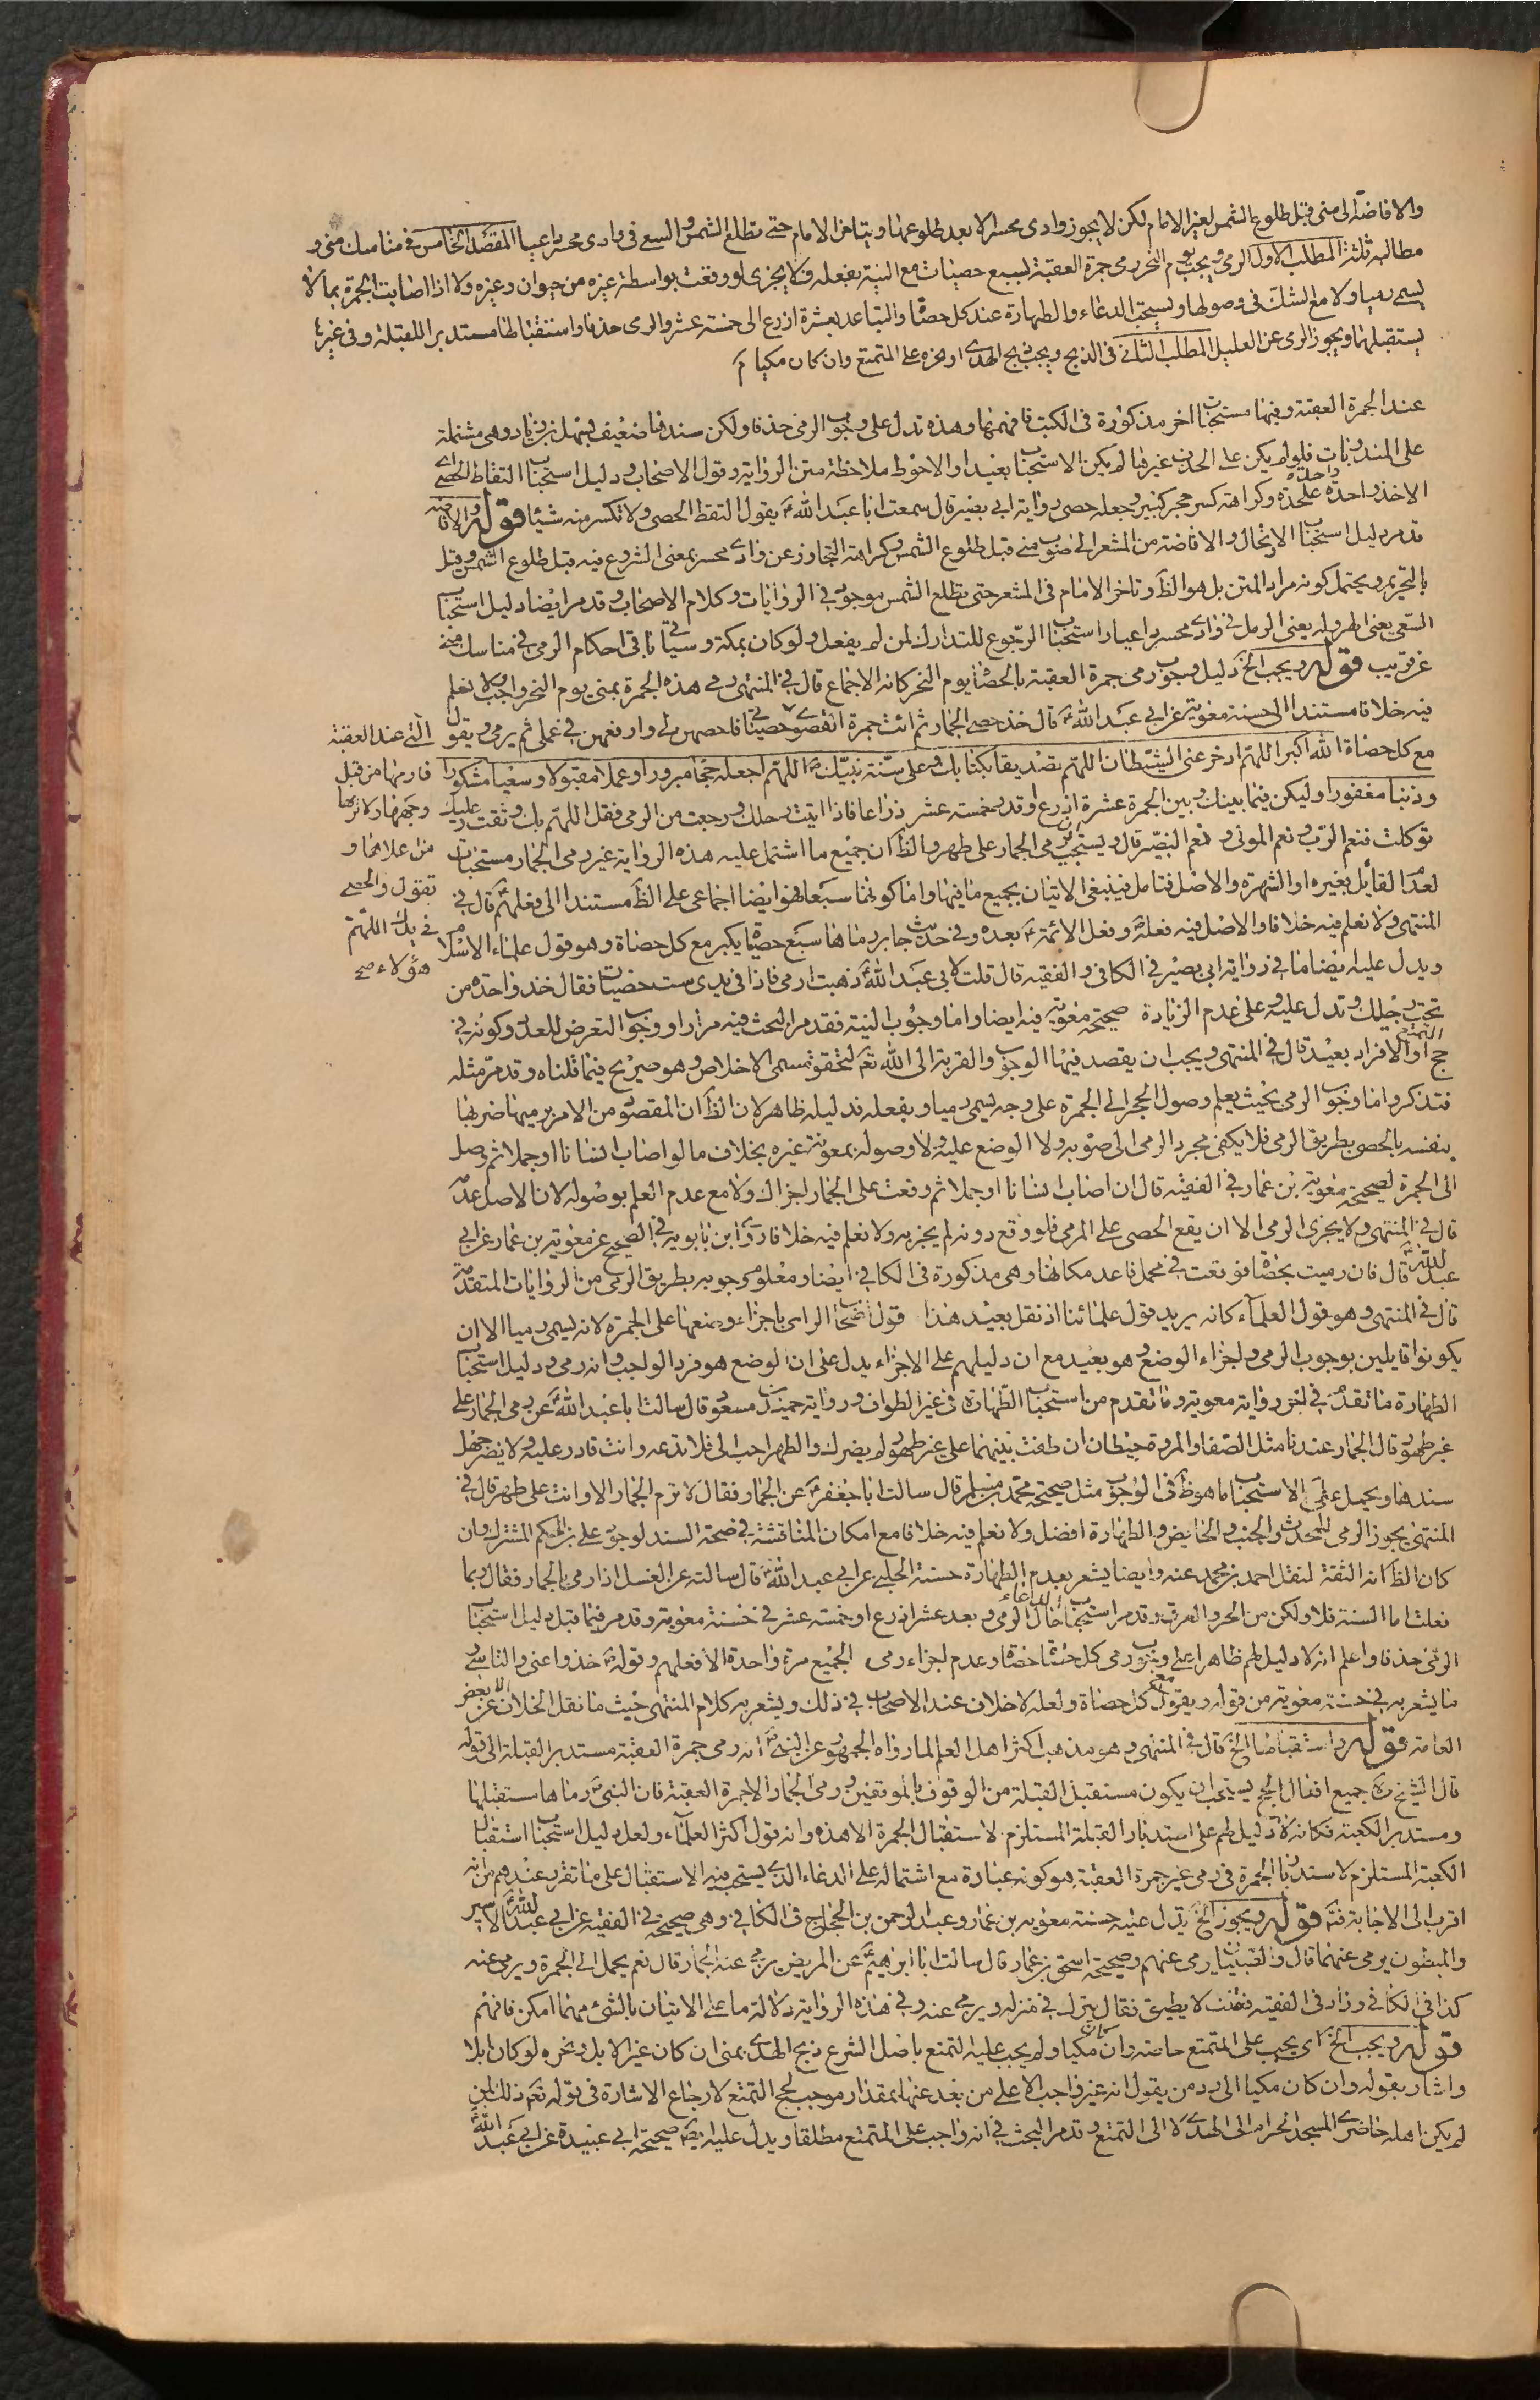 والافاضة الى منى قبل طلوع الشمس لغير الامام لكن لا يجوز وادى محسر الا بعد طلوعها ويتاخر الامام حتى تطلع الشمس والسعى فى وادى محسر داعيا المقصد الخامس فى مناسك منى و
مطالبه ثلثة المطلب الاول الرمى ويجب يوم النحر رمى جمرة العقبة بسبع حصيات مع النية بفعله فلا يجزى لو وقعت بواسطة غيره من حيوان وغيره ولا اذا اصابت الجمرة بما لا
يسمى رميا ولا مع الشك فى وصولها ويستحب الدعاء والطهارة عند كل حصاة والتباعد بعشرة اذرع الى خمسة عشر والرمى خذفا واستقبالها مستدبر اللقبلة وفى غيرها
يستقبلهما ويجوز الرمى عن العليل المطلب الثانى فى الذبح ويجب ذبح الهدى او نحره على المتمتع وان كان مكيا م
عند الجمرة العقبة وفيها مستحبات اخر مذكورة فى الكتب فافهمها وهذه تدل على وجوب الرمى خذفا ولكن سندها ضعيف بسهل بن زياد وهى مشتملة
على المندوبات فلو لم يكن على الحذف غيرها لم يكن الاستحباب بعيدا والاحوط ملاحظة متن الرواية وقول الاصحاب ودليل استحباب التقاط الحصى اى
الاخذ واحدة واحدة على حدة وكراهة كسر حجر كبير وجعله حصى رواية ابى بصير قال سمعت ابا عبد الله ع يقول التقط الحصى ولا تكسر منه شيئا قوله والافاضة
قد مر دليل استحباب الارتحال والافاضة من المشعر الى صوب منى قبل طلوع الشمس وكراهة التجاوز عن وادى محسر بمعنى الشروع فيه قبل طلوع الشمس وقيل
بالتحريم ويحتمل كونه مراد المتن بل هو الظ وتاخر الامام فى المشعر حتى تطلع الشمس موجود فى الروايات وكلام الاصحاب وقد مر ايضا دليل استحباب
السعى يعنى الهرولة يعنى الرمل فى وادى محسر داعيا واستحباب الرجوع للتدارك لمن لم يفعل ولو كان بمكة وسياتى باقى احكام الرمى فى مناسك منى
عن قريب قوله ويجب الخ دليل وجوب رمى جمرة العقبة بالحصا يوم النحر كانه الاجماع قال فى المنتهى رمى هذه الجمرة بمنى يوم النحر واجب ولا نعلم
فيه خلافا مستندا الى حسنة معوية عن ابى عبد الله ع قال خذ حصى الجمار ثم ائت جمرة القصوى التى عند العقبة
فارمها من قبل
وجهها ولا ترمها
من اعلاها و
تقول والحصى
فى يدك اللهم
هؤلاء صح
حصياتى فاحصهن لى وارفعهن فى عملى ثم يرمى ويقول
مع كل حصاة الله اكبر اللهم ادحر عنى الشيطان اللهم تصديقا بكتابك وعلى سنة نبيك ص اللهم اجعله حجا مبرورا وعملا مقبولا وسعيا مشكورا
وذنبا مغفورا وليكن فيما بينك وبين الجمرة عشرة اذرع او قدر خمسة عشر ذراعا فاذا اتيت رحلك ورجعت من الرمى فقل اللهم بك وثقت وعليك
توكلت فنعم الرب ونعم المولى ونعم النصير قال ويستحب ان يرمى الجمار على طهر والظ ان جميع ما اشتمل عليه هذه الرواية غير رمى الجمار مستحبات
لعدم القائل بغيره او الشهرة والاصل فتامل فينبغى الاتيان بجميع ما فيها واما كونها سبعا فهو ايضا اجماعى على الظ مستندا الى فعلهم ع قال فى
المنتهى ولا نعلم فيه خلافا والاصل فيه فعله ص وفعل الائمة ع بعده وفى حديث جابر رماها سبع حصيات يكبر مع كل حصاة وهو قول علماء الاسلام
ويدل عليه ايضا ما فى رواية ابى بصير فى الكافى والفقيه قال قلت لابى عبد الله ع ذهبت ارمى فاذا فى يدى ست حصيات فقال خذ واحدة من
تحت رجليك وتدل عليه وعلى عدم الزيادة صحيحة معوية فيه ايضا واما وجوب النية فقد مر البحث فيه مرارا ووجوب التعرض للعدد وكونه فى
حج التمتع او الافراد بعيد قال فى المنتهى ويجب ان يقصد فيها الوجوب والقربة الى الله تع لتحقق مسمى الاخلاص وهو صريح فيما قلناه وقد مر مثله
فتذكر واما وجوب الرمى بحيث يعلم وصول الحجر الى الجمرة على وجه يسمى رميا وبفعله فدليله ظاهر لان الظ ان المقصود من الامر برميها ضربها
بنفسه بالحصى بطريق الرمى فلا يكفى مجرد الرمى الى صوبه ولا الوضع عليه ولا وصوله بمعونة غيره بخلاف ما لو اصاب انسانا او جملا ثم وصل
الى الجمرة لصحيحة معوية بن عمار فى الفقيه قال ان اصاب انسانا او جملا ثم وقعت على الجمار اجزاك ولا مع عدم العلم بوصوله لان الاصل عدمه
قال فى المنتهى ولا يجزى الرمى الا ان يقع الحصى على المرمى فلو وقع دونه لم يجزيه ولا نعلم فيه خلافا رواه ابن بابويه فى الصحيح عن معوية بن عمار عن ابى
عبد الله ع قال فان رميت بحصاة فوقعت فى محمل فاعد مكانها وهى مذكورة فى الكافى ايضا ومعلوم وجوبه بطريق الرمى من الروايات المتقدمة
قال فى المنتهى وهو قول العلماء كانه يريد قول علمائنا اذ نقل بعيد هذا قول اصحاب الراى باجزاء وضعها على الجمرة لانه يسمى رميا الا ان
يكونوا قايلين بوجوب الرمى واجزاء الوضع وهو بعيد مع ان دليلهم على الاجزاء يدل على ان الوضع هو فرد الواجب وانه رمى ودليل استحباب
الطهارة ما تقدم فى اخر رواية معوية وما تقدم من استحباب الطهارة فى غير الطواف ورواية حميد بن مسعود قال سالت ابا عبد الله ع عن رمى الجمار على
غير طهور قال الجمار عندنا مثل الصفا والمروة حيطان ان طفت بينهما على غير طهور لم يضرك والطهر احب الى فلا تدعه وانت قادر عليه ولا يضر جهل
سندها ويحمل على الاستحباب ما هو ظ فى الوجوب مثل صحيحة محمد بن مسلم قال سالت ابا جعفر ع عن الجمار فقال لا ترم الجمار الا وانت على طهر قال فى
المنتهى يجوز الرمى للمحدث والجنب والحايض والطهارة افضل ولا نعلم فيه خلافا مع امكان المناقشة فى صحة السند لوجود على بن الحكم المشترك وان
كان الظ انه الثقة لنقل احمد بن محمد عنه وايضا يشعر بعدم الطهارة حسنة الحلبى عن ابى عبد الله ع قال سالته عن الغسل اذا رمى الجمار فقال ربما
فعلت اما السنة فلا ولكن من الحر والعرق وقد مر استحباب الدعاء حال الرمى وبعد عشر اذرع او خمسة عشر فى حسنة معوية وقد مر فيما قبل دليل استحباب
الرمى خذفا واعلم انه لا دليل لهم ظاهرا على وجوب رمى كل حصاة حصاة وعدم اجزاء رمى الجميع مرة واحدة الا فعلهم وقوله ص خذوا عنى والتاسى
ما يشعر به فى حسنة معوية من قوله ويقول مع كل حصاة ولعله لا خلاف عند الاصحاب فى ذلك ويشعر به كلام المنتهى حيث ما نقل الخلاف الا عن بعض
العامة قوله واستقبالها الخ قال فى المنتهى وهو مذهب اكثر اهل العلم لما رواه الجمهور عن النبى ص انه رمى جمرة العقبة مستدبر القبلة الى قوله
قال الشيخ ره جميع افعال الحج يستحب ان يكون مستقبل القبلة من الوقوف بالموقفين ورمى الجمار الا جمرة العقبة فان النبى ص رماها مستقبلها
ومستدبر الكعبة فكانه لا دليل لهم على استدبار القبلة المستلزم لاستقبال الجمرة الا هذه وانه قول اكثر العلماء ولعل دليل استحباب استقبال
الكعبة المستلزم لاستدبار الجمرة فى رمى غير جمرة العقبة هو كونه عبادة مع اشتماله على الدعاء الذى يستحب فيه الاستقبال على ما تقرر عندهم من انه
اقرب الى الاجابة فتم قوله ويجوز الخ يدل عليه حسنة معوية بن عمار وعبد الرحمن بن الحجاج فى الكافى وهى صحيحة فى الفقيه عن ابى عبد الله ع الكسير
والمبطون يرمى عنهما قال والصبيان يرمى عنهم وصحيحة اسحق بن عمار قال سالت ابا ابرهيم ع عن المريض يرمى عنه الجمار قال نعم يحمل الى الجمرة ويرمى عنه
كذا فى الكافى وزاد فى الفقيه قلت لا يطيق فقال يترك فى منزله ويرمى عنه وفى هذه الرواية دلالة ما على الاتيان بالشئ مهما امكن فافهم
قوله ويجب الخ اى يجب على المتمتع خاصة وان كان مكيا ولم يجب عليه التمتع باصل الشرع ذبح الهدى بمنى ان كان غير الابل ونحره لو كان ابلا
واشار بقوله وان كان مكيا الى رد من يقول انه غير واجب الا على من بعد عنها بمقدار موجب لحج التمتع لارجاع الاشارة فى قوله تع ذلك لمن
لم يكن اهله حاضرى المسجد الحرام الى الهدى لا الى التمتع وقد مر البحث فى انه واجب على المتمتع مطلقا ويدل عليه ايضا صحيحة ابى عبيدة عن ابى عبد الله ع